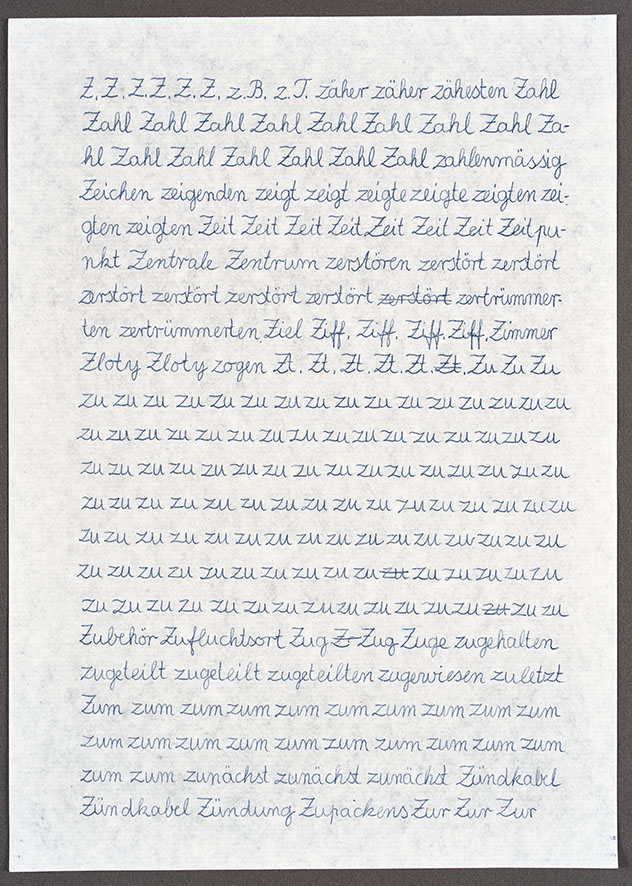 Z. Z. Z. Z. Z. Z. z.B. z.T. zäher zäher zähesten Zahl
Zahl Zahl Zahl Zahl Zahl Zahl Zahl Zahl Za-
hl Zahl Zahl Zahl Zahl Zahl Zahl zahlenmässig
Zeichen zeigenden zeigt zeigt zeigte zeigte zeigten zei-
gten zeigten Zeit Zeit Zeit Zeit Zeit Zeit Zeit Zeitpu-
nkt Zentrale Zentrum zerstören zerstört zerstört
zerstört zerstört zerstört zerstört zerstört zertrümmer-
ten zertrümmerten Ziel Ziff. Ziff. Ziff. Ziff. Zimmer
Zloty Zloty zogen Zt. Zt. Zt. Zt. Zt. Zt. Zu Zu Zu
zu zu zu zu zu zu zu zu zu zu zu zu zu zu zu zu
zu zu zu zu zu zu zu zu zu zu zu zu zu zu zu zu
zu zu zu zu zu zu zu zu zu zu zu zu zu zu zu zu
zu zu zu zu zu zu zu zu zu zu zu zu zu zu zu zu
zu zu zu zu zu zu zu zu zu zu zu zu zu zu zu zu
zu zu zu zu zu zu zu zu zu zu zu zu zu zu zu zu
zu zu zu zu zu zu zu zu zu zu zu zu zu zu zu zu
Zubehör Zufluchtsort Zug Z Zug Zuge zugehalten
zugeteilt zugeteilt zugeteilten zugewiesen zuletzt
Zum zum zum zum zum zum zum zum zum zum
zum zum zum zum zum zum zum zum zum zum
zum zum zunächst zunächst zunächst Zündkabel
Zündkabel Zündung Zupackens Zur Zur Zur